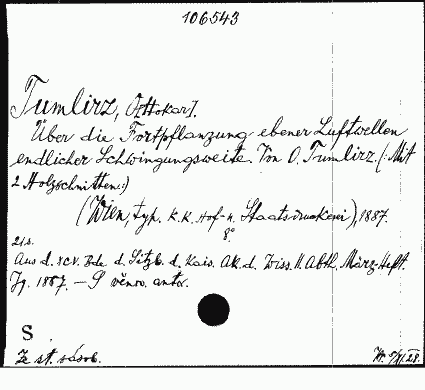 106543
Tumlirz, Ottokar].
Über die Fortpflanzung ebener Luftwellen
endlicher Schwingungsweite. Von O. Tumlirz. (: Mit
2 Holzschnitten:)
(Wien, typ. k. k. Hof- u. Staatsdruckerei), 1887.
8°
21 s.
Aus d. XCV. Bde d. Sitzb. d. kais. Ak. d. Wiss. II. Abth. März-Heft.
Jg. 1887. — S věnov. autor.
S
Ze st. zásob.